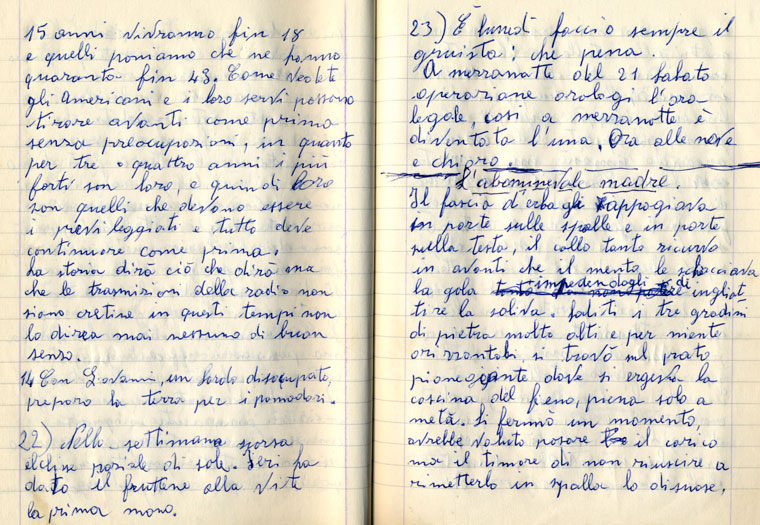 15 anni vivranno fin 18
e quelli poniamo che ne hanno
quaranta fin 43. Come vedete
gli Americani e i loro servi possono
tirare avanti come prima
senza preocupazioni, in quanto
per tre o quattro anni i più
forti son loro, e quindi loro
son quelli che devono essere
i previleggiati e tutto deve
continuare come prima.
La storia dirà ciò che dirà ma
che le trasmizioni della radio non
siano cretine in questi tempi non
lo dirà mai nessuno di buon
senso.
14 Con Giovanni, un sordo disocupato,
preparo la terra per i pomodori.
22) Nella settimana scorsa
eclisse parziale di sole. Ieri ha
dato il fruttane alla vite
la prima mano.
23) È lunedì faccio sempre il
gruista: che pena.
A mezzanotte del 21 sabato
operazione orologi l'ora
legale, così a mezzanotte è
diventata l'una. Ora alle nove
e chiaro.
L'abominevole madre.
Il fascio d'erba gli appogiava
in parte sulle spalle e in parte
sulla testa, il collo tanto ricurvo
in avanti che il mento le schiacciava
la gola impedendogli di inghiot
tire la saliva. Saliti i tre gradini
di pietra molto alti e per niente
orizzontali, si trovò sul prato
pianegiante dove si ergeva la
cascina del fieno, piena solo a
metà. Si fermò un momento,
avrebbe voluto posare il carico
ma il timore di non riuscire a
rimetterlo in spalla lo disuase,